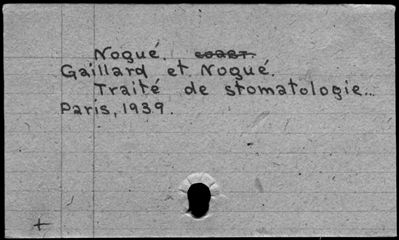 Nogué. coast.
Gaillard et Nogué.
Traité de stomatologie...
Paris, 1939.
+